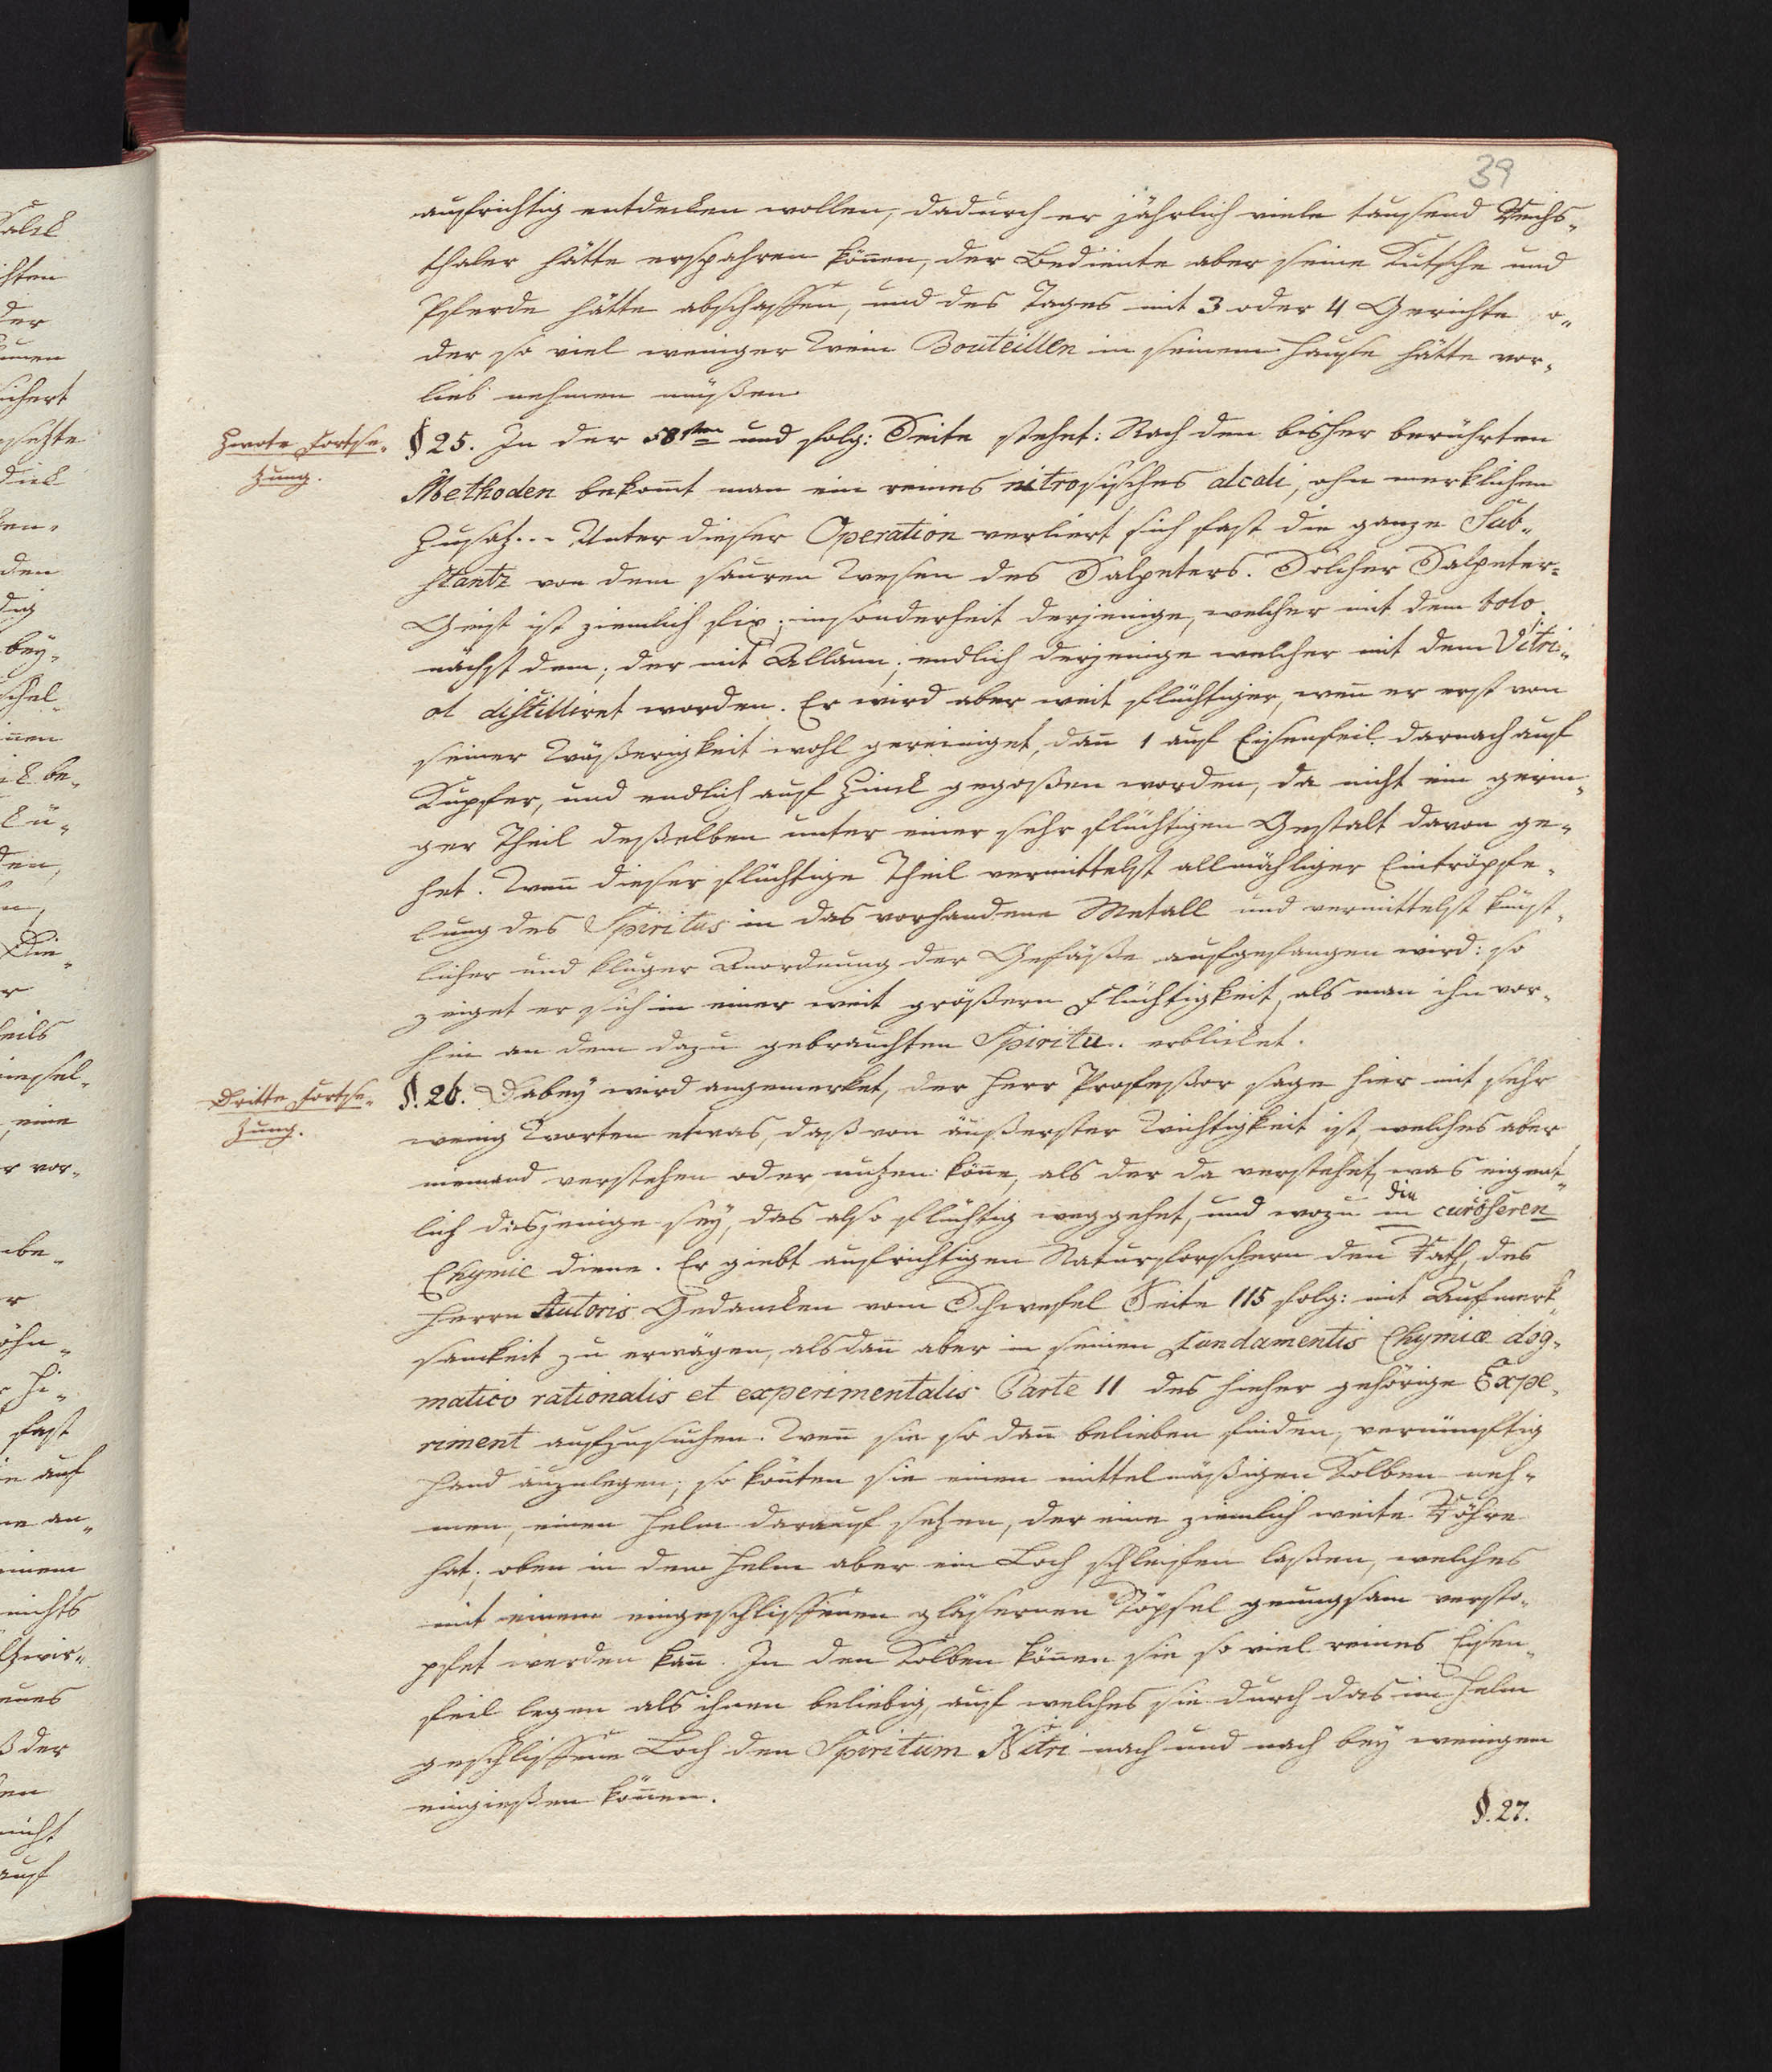 39
aufrichtig entdecken wollen, dadurch er jährlich viele tausend Reichs„
thaler hätte erspahren können, der Bediente aber seine Kutsche und
Pferde hätte abschaffen, und des Tages mit 3 oder 4 Gerichte o„
der so viel weniger Wein Bouteillen in seinem Hause hätte vor„
lieb nehmen müßen
Zwote Fortse„
zung.
§ 25. In der 58sten und folg: Seite stehet: Nach den bisher berührten
Methoden bekom̅t man ein reines nitrosisches alcali, ohn merklichen
Zusaz... Unter dieser Operation verliert sich fast die ganze Sub„
stantz von dem sauren Wesen des Salpeters. Solcher Salpeter=
Geist ist ziemlich fix; insonderheit derjenige, welcher mit dem bolo.
nächst dem, der mit Allaun, endlich derjenige welcher mit dem Vitri„
ol distilliret worden. Er wird aber weit flüchtiger, wen̅ er erst von
seiner Wäßerigkeit wohl gereiniget, dan̅ 1 auf Eisenfeil darnach auf
Kupfer, und endlich auf Zinck gegoßen worden, da nicht ein gerin„
ger Theil deßelben unter einer sehr flüchtigen Gestalt davon ge„
het. Wen̅ dieser flüchtige Theil vermittelst allmähliger Eintröpfe„
lung des Spiritus in das vorhandene Metall und vermittelst künst„
licher und kluger Anordnung der Gefäße aufgefangen wird: so
zeiget er sich in einer weit größern Flüchtigkeit, als man ihn vor„
hin an dem dazu gebrauchten Spiritu.. erblicket.
Dritte Fortse„
zung.
§. 26. Dabey wird angemerket, der Herr Profeßor sage hier mit sehr
wenig Worten etwas, daß von äußerster Wichtigkeit ist, welches aber
niemand verstehen oder nuzen kön̅e, als der da verstehet, was eigent„
lich dasjenige sey, das also flüchtig weggehet, und wozu in curöseren
die
Chymie diene. Er giebt aufrichtigen Naturforschern den Rath, des
Herrn Autoris Gedancken vom Schwefel Seite 115 folg: mit Aufmerk„
samkeit zu erwägen, alsdan̅ aber in seinen Fundamentis Chymiæ dog„
matico rationalis et experimentalis Parte II des hieher gehörige Expe„
riment aufzusuchen. Wen̅ sie so dan̅ belieben finden, vernünftig
Hand anzulegen; so kön̅ten sie einen mittelmäßigen Kolben neh„
men, einen Helm darauf sezen, der eine ziemlich weite Röhre
hat, oben in dem Helm aber ein Loch schleifen laßen, welches
mit einem eingeschliffenen gläsernen Töpsel genungsam versto„
pfet werden kan̅. In den Kolben kön̅en sie so viel reines Eisen„
feil legen als ihnen beliebig, auf welches sie durch das im Helm
geschliffene Loch den Spiritum Nitri nach und nach bey wenigem
eingießen kön̅en.
§. 27.